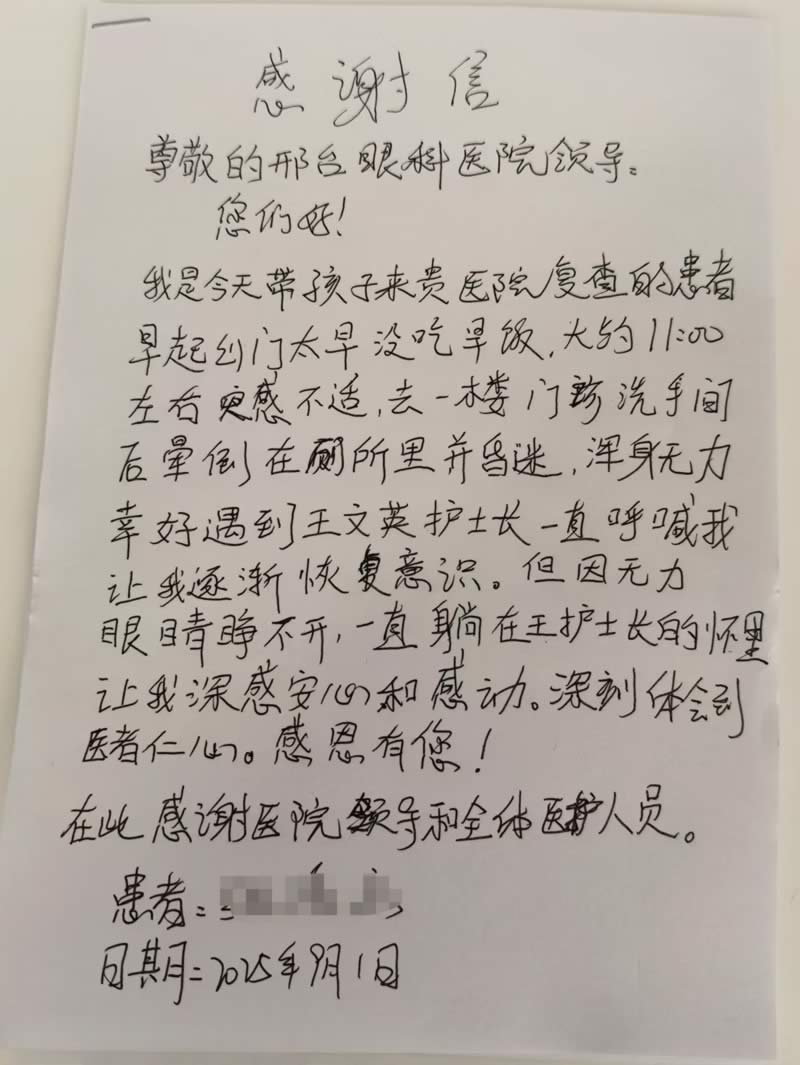 感谢信
尊敬的邢台眼科医院领导：
您们好！
我是今天带孩子来贵医院复查的患者
早起出门太早没吃早饭，大约11:00
左右突感不适，去一楼门诊洗手间
后晕倒在厕所里并昏迷，浑身无力
幸好遇到王文英护士长一直呼喊我
让我逐渐恢复意识。但因无力
眼睛睁不开，一直躺在王护士长的怀里
让我深感安心和感动。深刻体会到
医者仁心。感恩有您！
在此感谢医院领导和全体医护人员。
患者：
日期：2025年9月1日